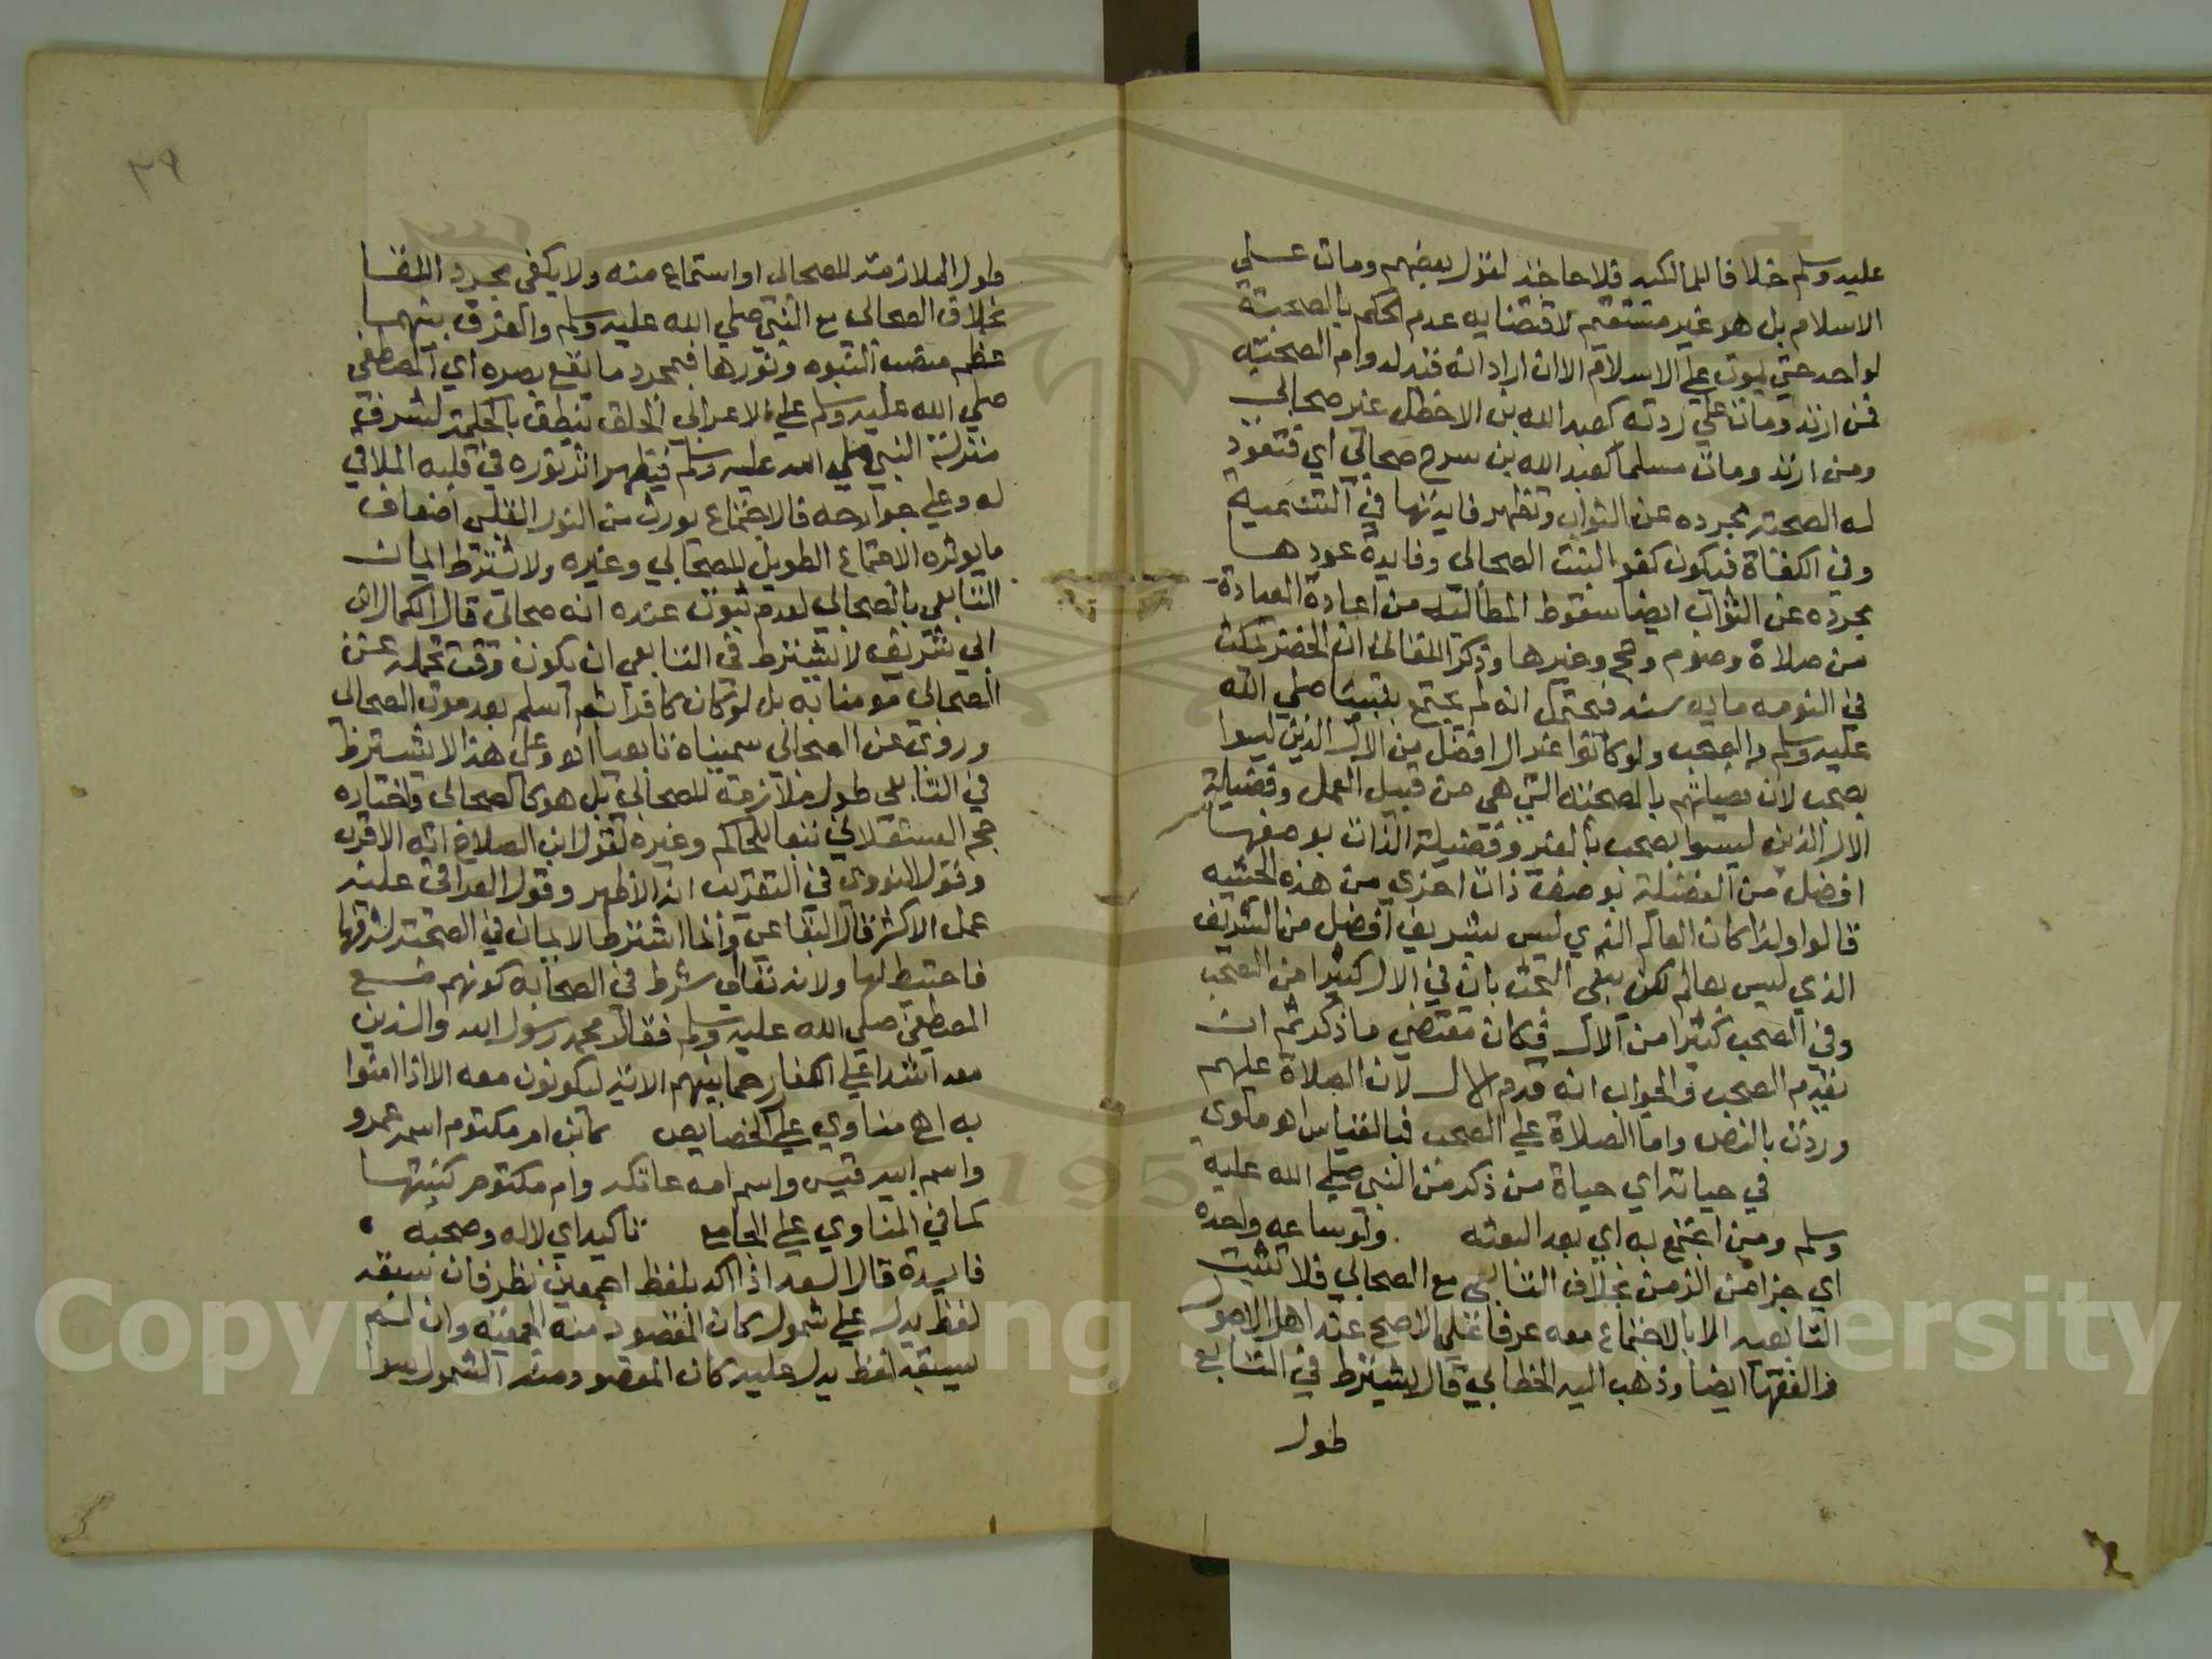 عليه وسلم خلافا للمالكيه فلا حاجة لقول بعضهم ومات على
الاسلام بل هو غير مستقيم لاقتضايه عدم الحكم بالصحبة
لواحد حتي يموت علي الاسلام الا ان اراد انه قيد لدوام الصحبة
فمن ارتد ومات علي ردته كعبد الله بن الاخطل غير صحابي
ومن ارتد ومات مسلما كعبد الله بن سرح صحابي اي فتعود
له الصحبة مجرده عن الثواب وتظهر فايدتها في التسمية
وفي الكفاة فيكون كفو البنت الصحابي وفايدة عودها
مجرده عن الثواب ايضا سقوط المطالبة من اعادة العبادة
من صلاة وصوم وحج وغيرها وذكر اللقاني ان الخضر يمكث
في النومه مايه سنه فيحتمل انه لم يجتمع بنبينا صلي الله
عليه وسلم والصحب ولو كانوا غير ال افضل من الال الذين ليسوا
بصحب لان فضيلتهم بالصحبة التي هي من قبيل العمل وفضيلة
الال الذين ليسوا بصحب بالغير وفضيلة الذات بوصفها
افضل من الفضيلة بوصف ذات اخري من هذه الحيثيه
قالوا ولذا كان العالم الذي ليس بشريف افضل من الشريف
الذي ليس بعالم لكن يبقي البحث بان في الال كثيرا من الصحب
وفي الصحب كثيرا من الال فكان مقتضي ما ذكر ثم ان
تقدم الصحب والجواب انه قدم الال لان الصلاة عليهم
وردت بالنص واما الصلاة علي الصحب فبالقياس اهو ملوي
في حياته اي حياة من ذكر من النبي صلي الله عليه
وسلم ومن اجتمع به اي بعد البعثه ولو ساعه واحدة
اي جزا من الزمن بخلاف التابعي مع الصحابي فلا تثبت
التابعيه الا بالاجتماع معه عرفا علي الاصح عند اهل الاصول
والفقها ايضا وذهب اليه الخطابي قال يشترط في التابع
طول
٣٩
طول الملازمة للصحابي او استماع منه ولا يكفي مجرد اللقا
بخلاف الصحابي مع النبي صلي الله عليه وسلم والفرق بينهما
عظم منصب النبوه ونورها فبمجرد ما يقع بصره اي المصطفي
صلي الله عليه وسلم علي الاعرابي الجلف ينطق بالحكمة لشرف
منزلة النبي صلي الله عليه وسلم فيظهر اثر نوره في قلبه الملاقي
له وعلي جوارحه فالاجتماع يورث من النور القلبي اضعاف
ما يوثره الاجتماع الطويل للصحابي وغيره ولا يشترط ايمان
التابعي بالصحابي لعدم ثبوت عنده انه صحابي قال الكمال ابن
ابي شريف لا يشترط في التابعي ان يكون وقت تحمله عن
الصحابي مومنا به بل لو كان كافرا ثم اسلم بعد موت الصحابي
وروي عن الصحابي سميناه تابعيا اهو وعلي هذا لا يشترط
في التابعي طول ملازمة للصحابي بل هو كالصحابي واختاره
حجر العسقلاني تبعا للحاكم وغيره لقول ابن الصلاح انه الاقرب
وقول النووي في التقريب انه الاظهر وقول العراقي عليه
عمل الاكثر قال البقاعي وانما اشترط الايمان في الصحبة لشرفها
فاحتيط لها ولانه تعالي شرط في الصحابه كونهم مع
المصطفي صلي الله عليه وسلم فقال محمد رسول الله والذين
معه اشدا علي الكفار رحما بينهم الاية ليكونون معه الا اذا امنوا
به اه مناوي علي الخصايص كابن ام مكتوم اسمه عمرو
واسم ابيه قيس واسم امه عاتكه وام مكتوم كنيتها
كما في المناوي علي الجامع تاكيد اي لاله وصحبه
فايدة قال السعد اذا اكد بلفظ اجمعين نظر فان سبقه
لفظ يدل علي شمول كان المقصود منه الجمعية وان لم
يسبقه لفظ يدل عليه كان المقصود منه الشمول سوا